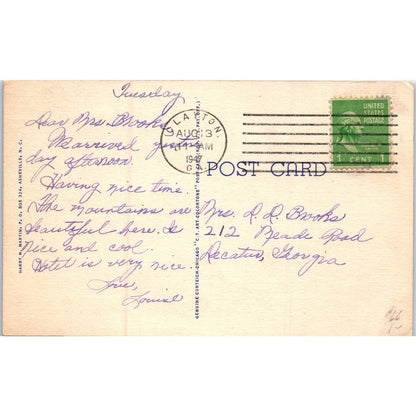 Tuesday
Dear Mrs. Brooks,
We arrived yester-
day afternoon.
Having nice time.
The mountains are
beautiful here. Is
nice and cool.
Hotel is very nice.
Love,
Louise
HARRY N. MARTIN, P. O. BOX 324, ASHEVILLE, N. C.
GENUINE CURTEICH-CHICAGO "C. T. ART-COLORTONE" POST CARD
CLAYTON,
AUG 13
AM
1947
GA.
UNITED
STATES
POSTAGE
1 CENT 1
POST CARD
Mrs. R. R. Brooks
212 Meade Road
Decatur, Georgia